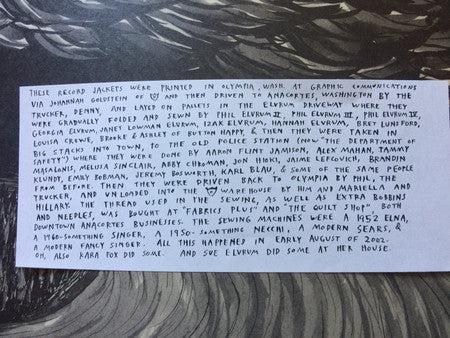 THESE RECORD JACKETS WERE PRINTED IN OLYMPIA, WASH. AT GRAPHIC COMMUNICATIONS
VIA JOHANNAH GOLDSTEIN OF K AND THEN DRIVEN TO ANACORTES, WASHINGTON BY THE
TRUCKER, DENNY, AND LAYED ON PALLETS IN THE ELVRUM DRIVEWAY WHERE THEY
WERE GRADUALLY FOLDED AND SEWN BY PHIL ELVRUM II, PHIL ELVRUM III, PHIL ELVRUM IV,
GEORGIA ELVRUM, JANET LOWMAN ELVRUM, IZAK ELVRUM, HANNAH ELVRUM, BRET LUNSFORD,
LOUISA CREWE, BROOKE & ASHLEY OF BUTTON HAPPY, & THEN THEY WERE TAKEN IN
BIG STACKS INTO TOWN, TO THE OLD POLICE STATION (NOW "THE DEPARTMENT OF
SAFETY") WHERE THEY WERE DONE BY AARON FLINT JAMISON, ALEX MAHAN, TAMMY
MASALONIS, MELISSA SINCLAIR, ABBY CHROMAN, JON HIOKI, JAIME LEFCOVICH, BRANDIN
KLUNDT, EMILY BOBMAN, JEREMY BOSWORTH, KARL BLAU, & SOME OF THE SAME PEOPLE
FROM BEFORE. THEN THEY WERE DRIVEN BACK TO OLYMPIA BY PHIL, THE
TRUCKER, AND UNLOADED INTO THE K WAREHOUSE BY HIM AND MARIELLA AND
HILLARY. THE THREAD USED IN THE SEWING, AS WELL AS EXTRA BOBBINS
AND NEEDLES, WAS BOUGHT AT "FABRICS PLUS" AND "THE QUILT SHOP" BOTH
DOWNTOWN ANACORTES BUSINESSES. THE SEWING MACHINES WERE A 1952 ELNA,
A 1960-SOMETHING SINGER, A 1950-SOMETHING NECCHI, A MODERN SEARS, &
A MODERN FANCY SINGER. ALL THIS HAPPENED IN EARLY AUGUST OF 2002.
OH, ALSO KARA FOX DID SOME. AND SUE ELVRUM DID SOME AT HER HOUSE.